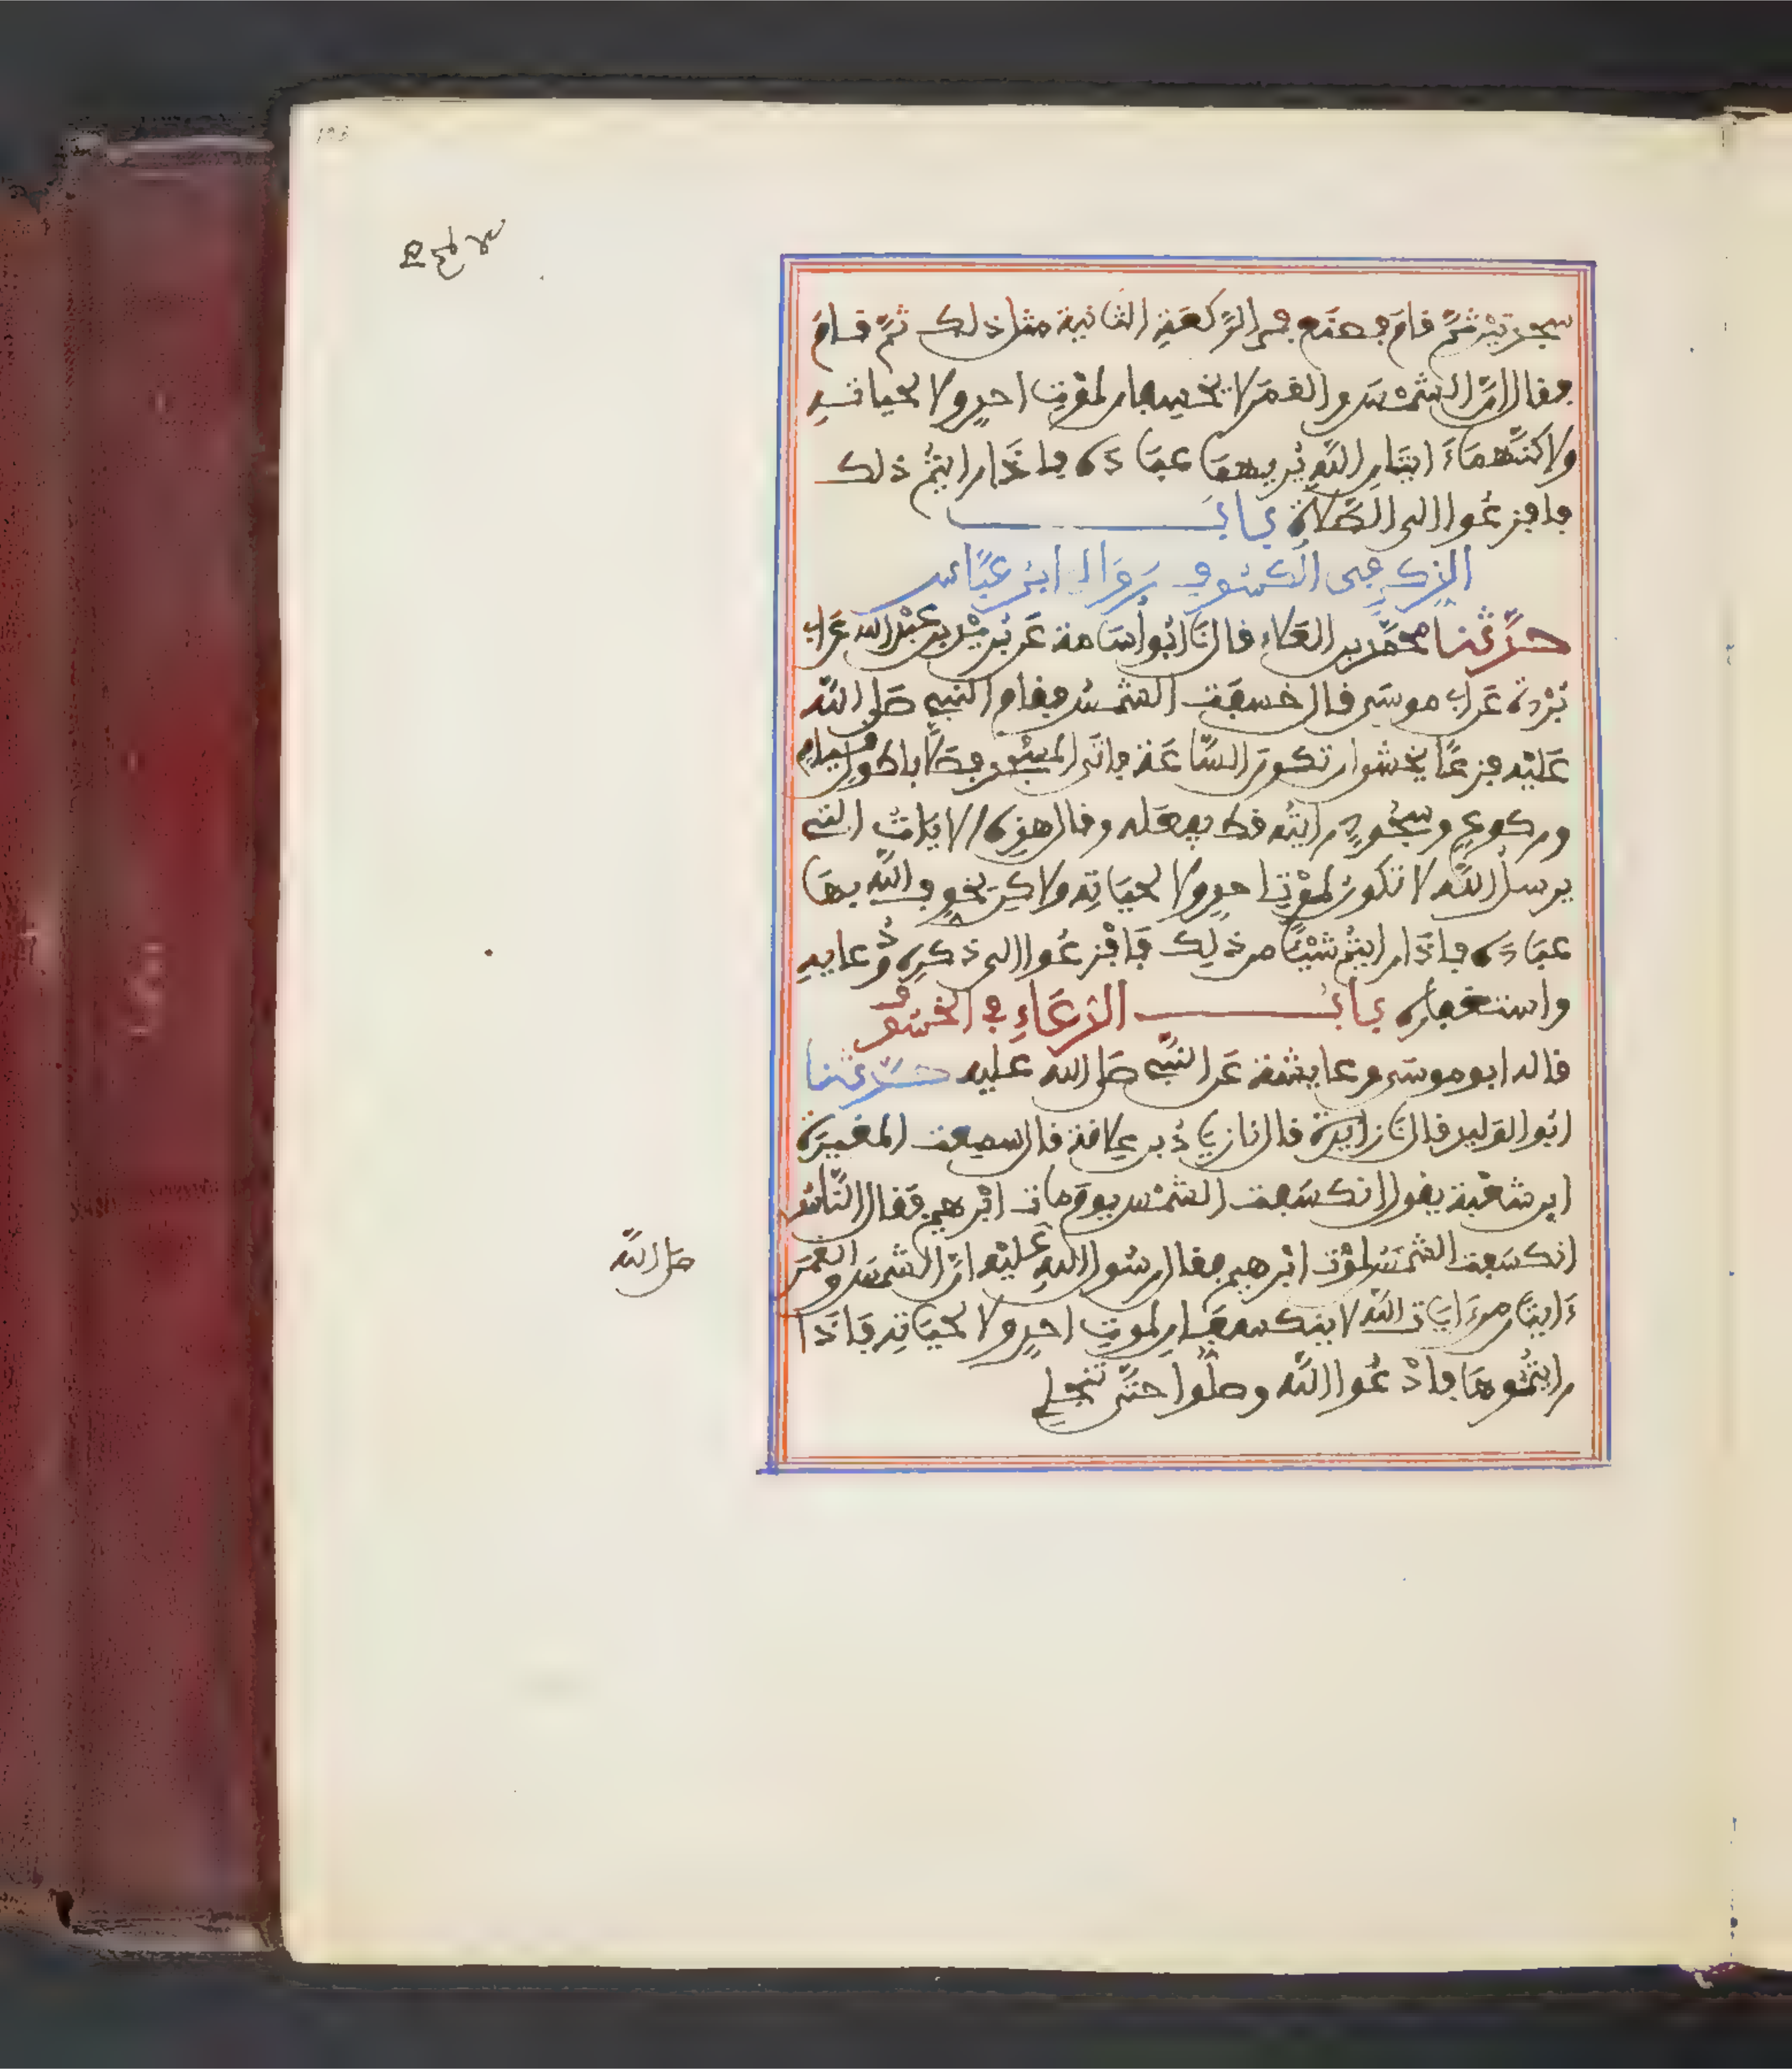 سجدتين ثمَّ قامَ فصنَع في الرَّكعَةِ الثانية مثل ذلك ثمَّ قام
فقال انَّ الشمْسَ والقمَرَ لا يخسفان لموْتِ احدٍ ولا لحياتِه
ولاكنَّهمَا ءَايتَانِ اللَّهِ يُريهمَا عبَادَه فاذَا رايتُمْ ذلك
فافزعُوا الى الصَّلاةِ بابُ
الذكر في الكسُوف رَوَاه ابنُ عَبَّاس
حدَّثنا محمَّد بن العَلاء قال نَا ابُو أُسَامة عَن بُريْد بن عبْد الله عَن ابي
بُرْدة عَن ابي موسَى قال خسفَت الشمسُ فقام النبي صَلى اللَّه
عَليْه فزعًا يخشى ان تكونَ السَّاعَة فاتَى المسْجد فصَلَّى باطول قيام
وركوعٍ وسجُودٍ رايتُه قط يفعَله وقال هذِه الايَاتُ التي
يرسلُ اللَّه لا تكونُ لموْتِ احدٍ ولا لحيَاتِه ولاكِن يخوف اللَّه بهَا
عبَادَه فاذَا رايتُم شيْئًا من ذلِك فَافْزعُوا الى ذكرِه ودُعايه
واستغفاره بابُ الدعَاءِ في الخسُوف
قاله ابو موسَى وعايشة عَن النبَّي صَلى الله عليه حدَّثنا
ابُو الوَليد قال نَا زايدة قال نا زيَادُ بن علاقة قال سمعت المغيرَة
ابن شعْبة يقول انكسَفت الشمْس يومَ مات ابْرهيم فقال النَّاسُ
انكسَفت الشمسُ لموْت ابْرهيم فقال رسُول اللهِ عَليْه انَّ الشمسَ والقمَرَ
ءَايتَان منَ ءَايَات اللَّه لا ينكسفَان لموتِ احدٍ ولا لحيَاتِه فَاذَا
رايتُموهَا فادْعُوا اللَّه وصلُّوا حتَّى تنجلي
صَلى اللَّه